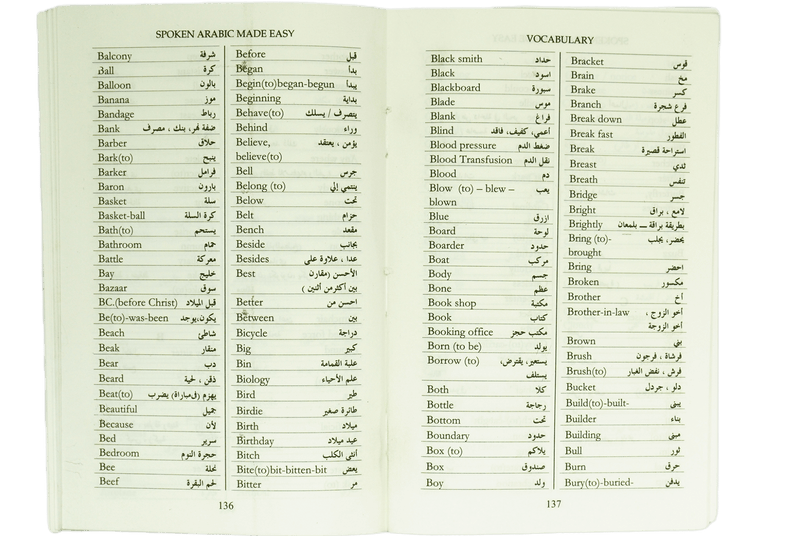 SPOKEN ARABIC MADE EASY
Balcony شرفة
Ball كرة
Balloon بالون
Banana موز
Bandage رباط
Bank ضفة نهر، بنك، مصرف
Barber حلاق
Bark(to) ينبح
Barker فرامل
Baron بارون
Basket سلة
Basket-ball كرة السلة
Bath(to) يستحم
Bathroom حمام
Battle معركة
Bay خليج
Bazaar سوق
BC.(before Christ) قبل الميلاد
Be(to)-was-been يكون،يوجد
Beach شاطئ
Beak منقار
Bear دب
Beard ذقن ، لحية
Beat(to) يهزم (في مباراة) يضرب
Beautiful جميل
Because لأن
Bed سرير
Bedroom حجرة النوم
Bee نحلة
Beef لحم البقرة
Before قبل
Began بدأ
Begin(to)began-begun يبدأ
Beginning بداية
Behave(to) يتصرف / يسلك
Behind وراء
Believe, يؤمن ، يعتقد
believe(to)
Bell جرس
Belong (to) ينتمي إلي
Below تحت
Belt حزام
Bench مقعد
Beside بجانب
Besides عدا ، علاوة على
Best الأحسن (مقارن
بين أكثر من أثنين )
Better احسن من
Between بين
Bicycle دراجة
Big كبير
Bin علبة القمامة
Biology علم الأحياء
Bird طير
Birdie طائرة صغير
Birth ميلاد
Birthday عيد ميلاد
Bitch أنثى الكلب
Bite(to)bit-bitten-bit يعض
Bitter مر
136
VOCABULARY
Black smith حداد
Black اسود
Blackboard سبورة
Blade موس
Blank فراغ
Blind أعمي، كفيف، فاقد
Blood pressure ضغط الدم
Blood Transfusion نقل الدم
Blood دم
Blow (to) – blew – يهب
blown
Blue ازرق
Board لوحة
Boarder حدود
Boat مركب
Body جسم
Bone عظم
Book shop مكتبة
Book كتاب
Booking office مكتب حجز
Born (to be) يولد
Borrow (to) يستعير، يقترض،
يستلف
Both كلا
Bottle زجاجة
Bottom تحت
Boundary حدود
Box (to) يلاكم
Box صندوق
Boy ولد
Bracket قوس
Brain مخ
Brake كسر
Branch فرع شجرة
Break down عطل
Break fast الفطور
Break استراحة قصيرة
Breast ثدي
Breath تنفس
Bridge جسر
Bright لامع ، براق
Brightly بطريقة براقة – بلمعان
Bring (to)- يحضر، يجلب
brought
Bring احضر
Broken مكسور
Brother أخ
Brother-in-law أخو الزوج ،
أخو الزوجة
Brown بني
Brush فرشاة ، فرجون
Brush(to) فرش ، نفض الغبار
Bucket دلو ، جردل
Build(to)-built- يبنى
Builder بناء
Building مبنى
Bull ثور
Burn حرق
Bury(to)-buried- يدفن
137